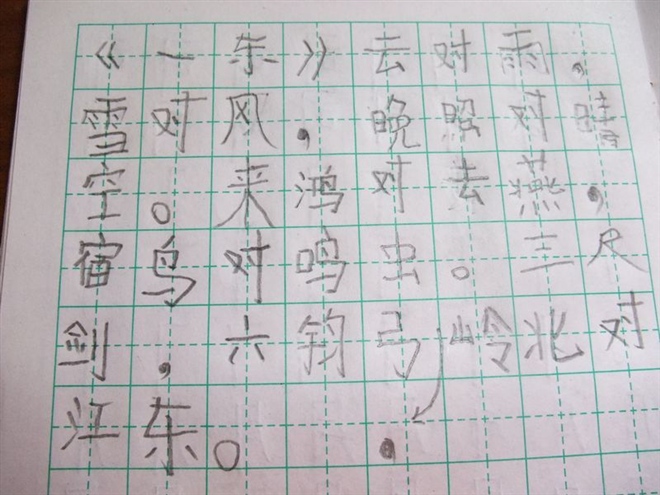 《一东》云对雨,
雪对风,晚照对晴
空。来鸿对去燕,
宿鸟对鸣虫。三尺
剑,六钧弓,岭北对
江东。